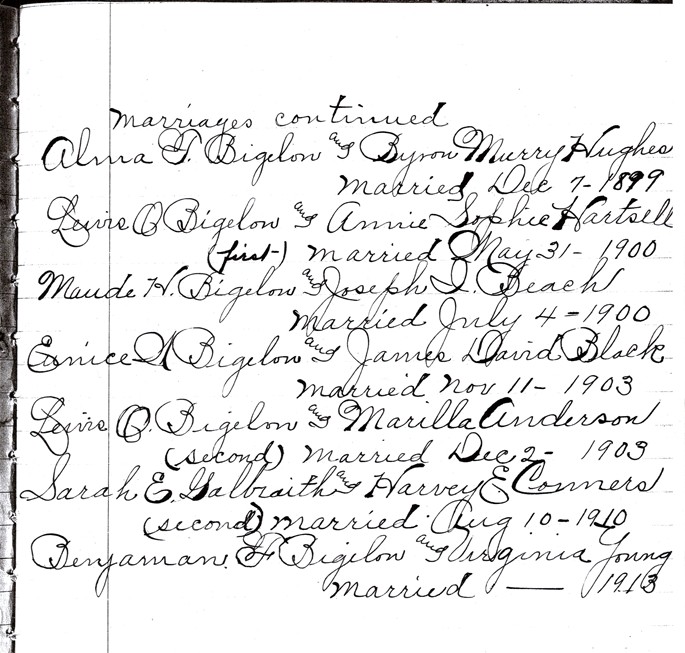 Marriages continued
Alma F. Bigelow and Byron Murry Hughes
Married Dec 7-1899
Lewis O Bigelow and Annie Sophie Hartsell
(first-) married May 31-1900
Maude H. Bigelow and Joseph I. Beach
Married July 4-1900
Eunice A Bigelow and James David Black
Married Nov 11-1903
Lewis O. Bigelow and Marilla Anderson
(second) married Dec 2-1903
Sarah E. Galbraith and Harvey E Conners
(second) married Aug 10-1910
Benjaman F Bigelow and Virginia Young
Married — 1913